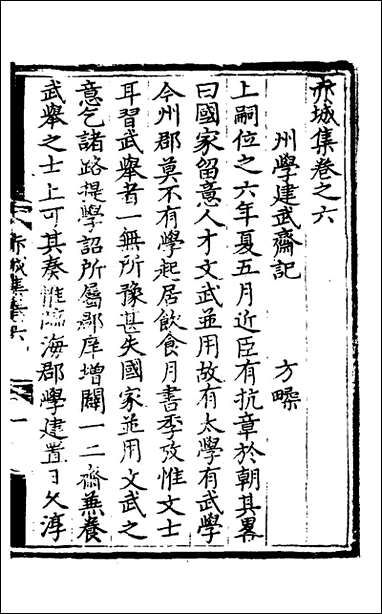 赤城集卷之六
州學建武齋記　方㮚
上嗣位之六年夏五月近臣有抗章於朝其畧
曰國家留意人才文武並用故有太學有武學
今州郡莫不有學起居飲食月書季攷惟文士
耳習武舉者一無所豫甚失國家並用文武之
意乞諸路提學詔所屬郡庠增闢一二齋兼養
武舉之士上可其奏惟臨海郡學建置日久淳
赤城集卷六
一